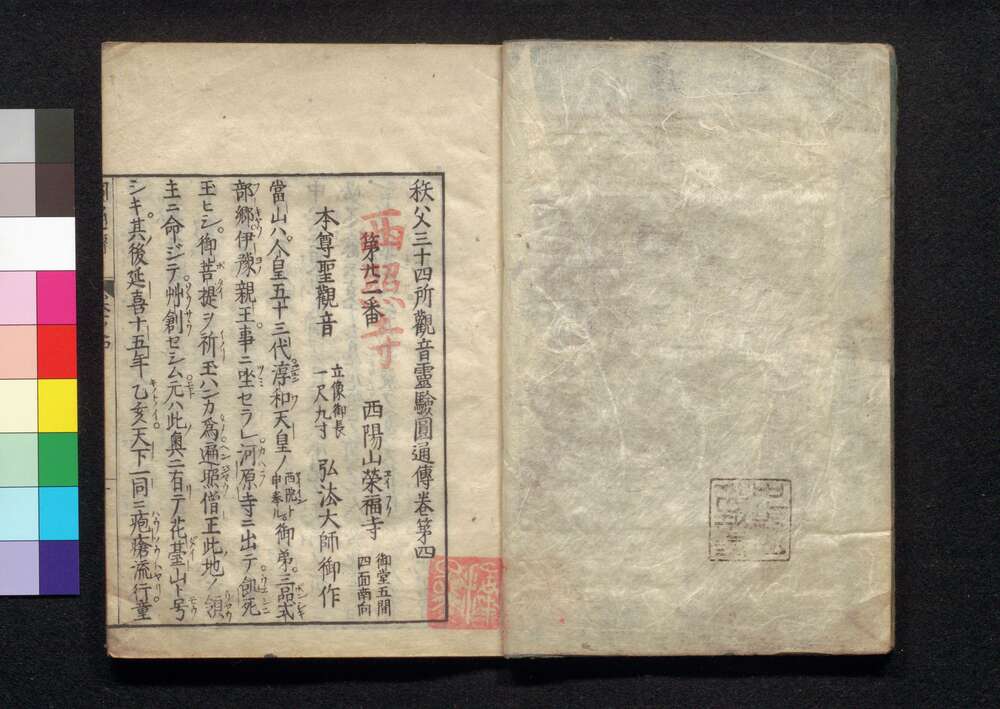 秩父三十四所觀音靈驗圓通傳卷第四
西照寺
第廿三番
西陽山榮福寺
エイフク
御堂五間
四面南向
本尊聖觀音
立像御長
一尺九寸
弘法大師御作
當山ハ人皇五十三代淳和天皇ノ
御弟三品式
部郷伊豫親王事ニ坐セラレ河原寺ニ出テ飢死
玉ヒシ御菩提ヲ祈玉ハンカ為遍照僧正此地ノ領
主ニ命ジテ艸創セシム元ハ此奥ニ有テ花基山ト号
シキ其後延喜十五年乙亥天下一同ニ疱瘡流行童